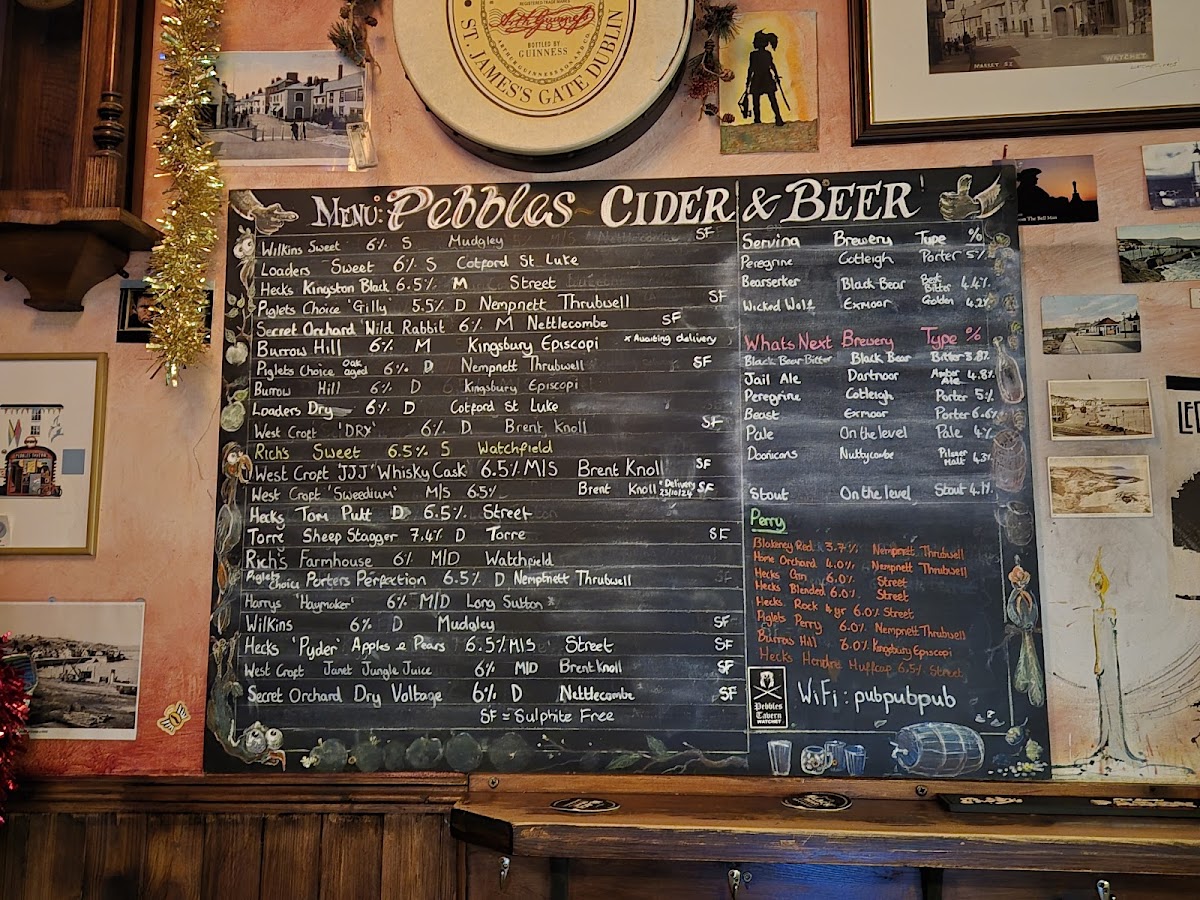 REGISTERED TRADE MARK
ARTHUR GUINNESS SON AND CO
BOTTLED BY
GUINNESS
ST. JAMES'S GATE DUBLIN
MARKET ST
WATCHET
MENU: Pebbles CIDER & BEER
Wilkins Sweet 6% S Mudgley SF
Loaders Sweet 6% S Cotford St Luke
Hecks Kingston Black 6.5% M Street
Piglets Choice 'Gilly' 5.5% D Nempnett Thrubwell SF
Secret Orchard Wild Rabbit 6% M Nettlecombe SF
Burrow Hill 6% M Kingsbury Episcopi * Awaiting delivery
Piglets Choice Oak aged 6% D Nempnett Thrubwell SF
Burrow Hill 6% D Kingsbury Episcopi
Loaders Dry 6% D Cotford St Luke
West Croft 'DRY' 6% D Brent Knoll SF
Rich's Sweet 6.5% S Watchfield
West Croft 'JJJ' Whisky Cask' 6.5% M/S Brent Knoll SF
West Croft 'Sweedium' M/S 6.5% Brent Knoll *Delivery 23/10/24 SF
Hecks Tom Putt D 6.5% Street
Torre Sheep Stagger 7.4% D Torre SF
Rich's Farmhouse 6% M/D Watchfield
Piglets Choice Porters Perfection 6.5% D Nempnett Thrubwell SF
Harrys 'Haymaker' 6% M/D Long Sutton *
Wilkins 6% D Mudgley SF
Hecks 'Pyder' Apples & Pears 6.5% M/S Street SF
West Croft Janet Jungle Juice 6% M/D Brent Knoll SF
Secret Orchard Dry Voltage 6% D Nettlecombe SF
SF = Sulphite Free
Serving Brewery Type %
Peregrine Cotleigh Porter 5%
Bearserker Black Bear Best Bitter 4.4%
Wicked Wolf Exmoor Golden 4.2%
Whats Next Brewery Type %
Black Bear Bitter Black Bear Bitter 3.8%
Jail Ale Dartmoor Amber Ale 4.8%
Peregrine Cotleigh Porter 5%
Beast Exmoor Porter 6.6%
Pale On the level Pale 4%
Doonicans Nuttycombe Pilsner Malt 4.3%
Stout On the level Stout 4.1%
Perry
Blakeney Red 3.7% Nempnett Thrubwell
Home Orchard 4.0% Nempnett Thrubwell
Hecks Gin 6.0% Street
Hecks Blended 6.0% Street
Hecks Rock 4yr 6.0% Street
Piglets Perry 6.0% Nempnett Thrubwell
Burrow Hill 7.0% Kingsbury Episcopi
Hecks Hendre Huffcap 6.5% Street
Pebbles
Tavern
WATCHET
WiFi: pubpubpub